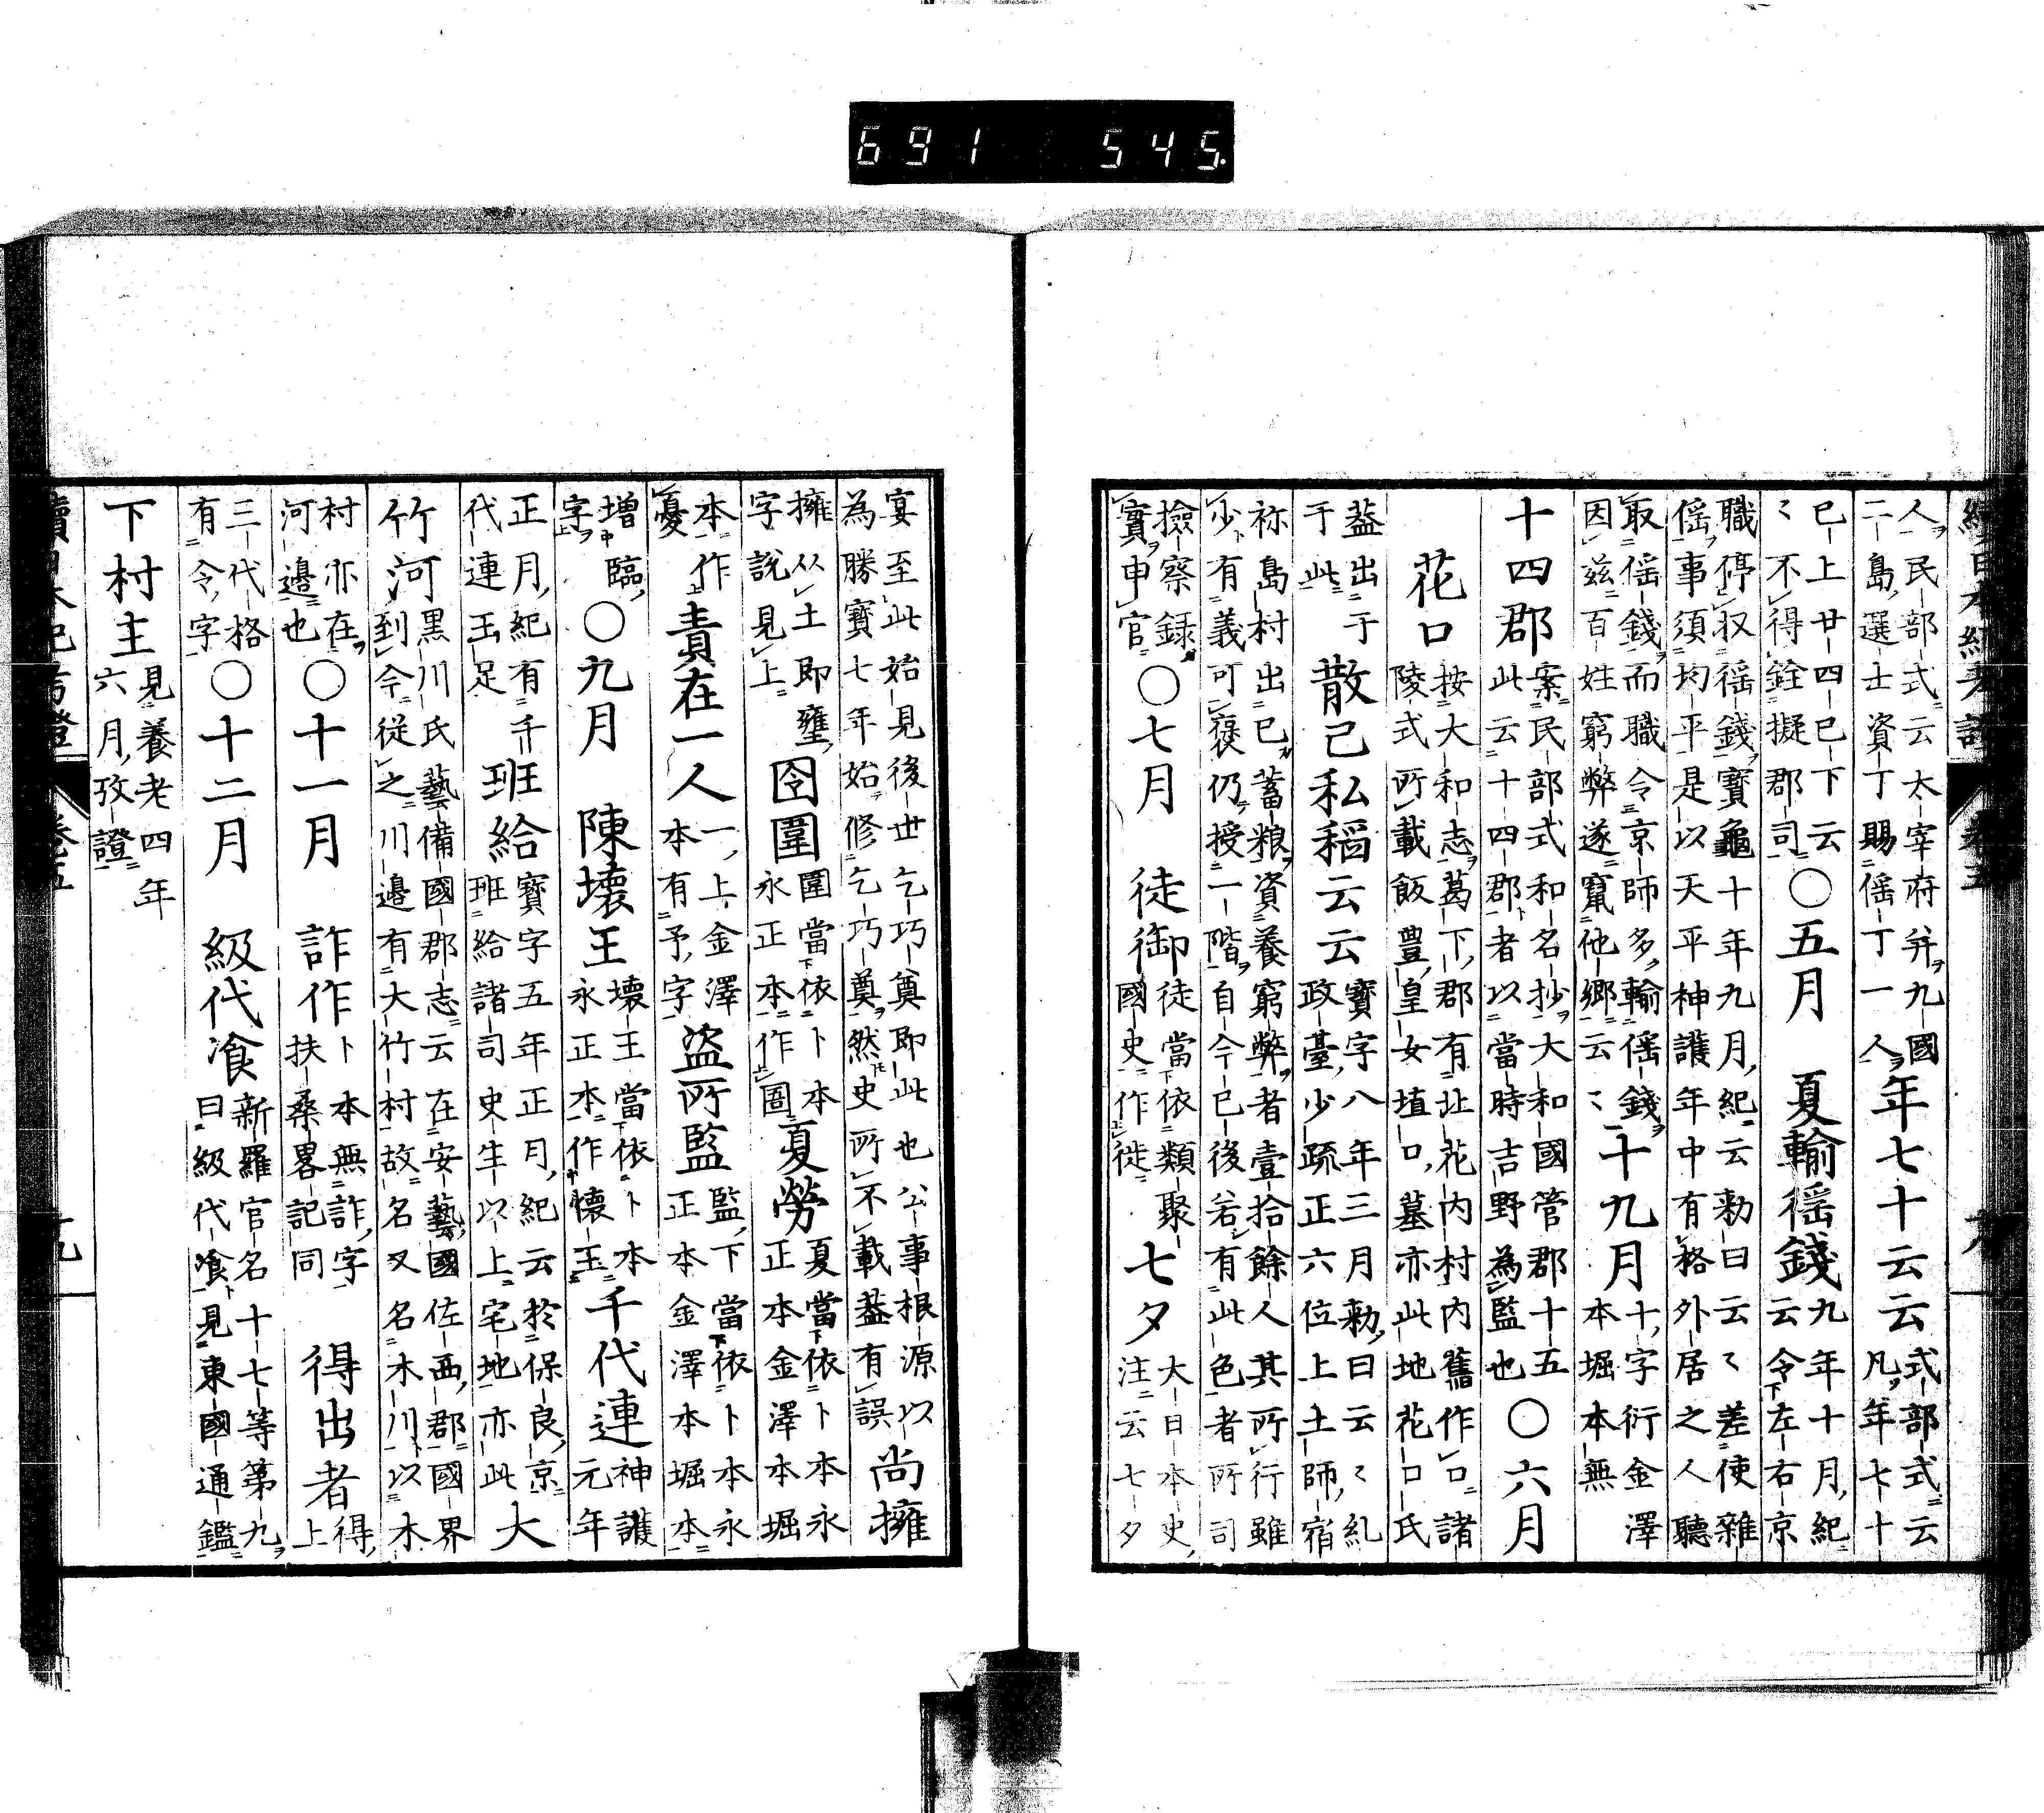 691 545
續日本紀考證 卷五
人民部式云太宰府并九國
二島選士資丁賜徭丁一人
年七十云云
式部式云
凡年七十
已上廿四已下云
〻不得銓擬郡司
〇五月 夏輸徭錢
九年十月紀
云令左右京
職停收徭錢寶龜十年九月紀云勅曰云〻差使雜
徭事須均平是以天平神護年中有格外居之人聽
取徭錢而職令京師多輸徭錢
因茲百姓窮弊遂竄他鄉云〻
十九月
十字衍金澤
本堀本無
十四郡
案民部式和名抄大和國管郡十五
此云十四郡者以當時吉野為監也
〇六月
花口
按大和志葛下郡有北花内村内舊作口諸
陵式所載飯豐皇女埴口墓亦此地花口氏
蓋出于
于此
散己私稻云云
寶字八年三月勅曰云〻糺
政臺少疏正六位上土師宿
祢島村出已蓄粮資養窮弊者壹拾餘人其所行雖
少有義可襃仍授一階自今已後若有此色者所司
撿察録
實申官
〇七月 徒御
徒當依類聚
國史作徙
七夕
大日本史
注云七夕
宴至此始見後世乞巧奠即此也公事根源以
為勝寶七年始修乞巧奠然史所不載蓋有誤
尚擁
擁从土即壅
字說見上
囹圍
圍當依卜本
永正本作圄
夏勞
夏當依卜本永
正本金澤本堀
本作
憂
責在一人
一上金澤
本有予字
盜所監
監下當依卜本永
正本金澤本堀本
增臨
字
〇九月 陳壞王
壞王當依卜本
永正本作懷玉
千代連
神護
元年
正月紀有千
代連玉足
班給
寶字五年正月紀云於保良京
班給諸司史生以上宅地亦此
大
竹河
黒川氏藝備國郡志云在安藝國佐西郡國界
到今從之川邊有大竹村故名又名木川以木
村亦在
河邊也
〇十一月 詐作
卜本無詐字
扶桑畧記同
得出者
得
上
三代格
有令字
〇十二月 級代飡
新羅官名十七等第九
曰級代飡見東國通鑑
下村主
見養老四年
六月攷證
續日本紀考證 卷五 十九